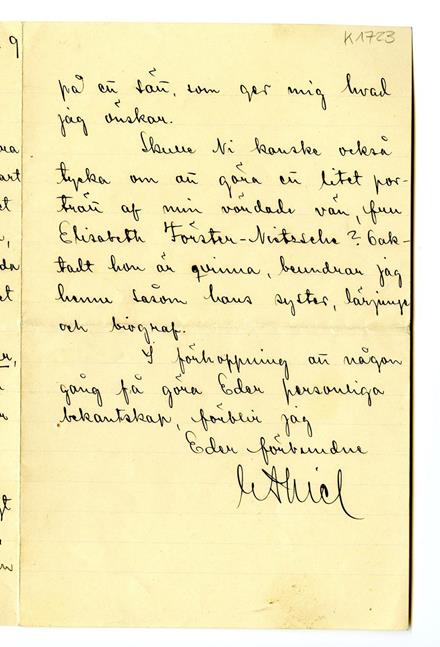 K1723
9
på ett sätt, som ger mig hvad
jag önskar.
Skulle Ni kanske också
tycka om att göra ett litet por-
trätt af min vördade vän, fru
Elisabeth Förster-Nietzsche? Oak-
tadt hon är qvinna, beundrar jag
henne såsom hans syster, lärjunge
och biograf.
I förhoppning att någon
gång få göra Eder personliga
bekantskap, förblir jag
Eder förbundne